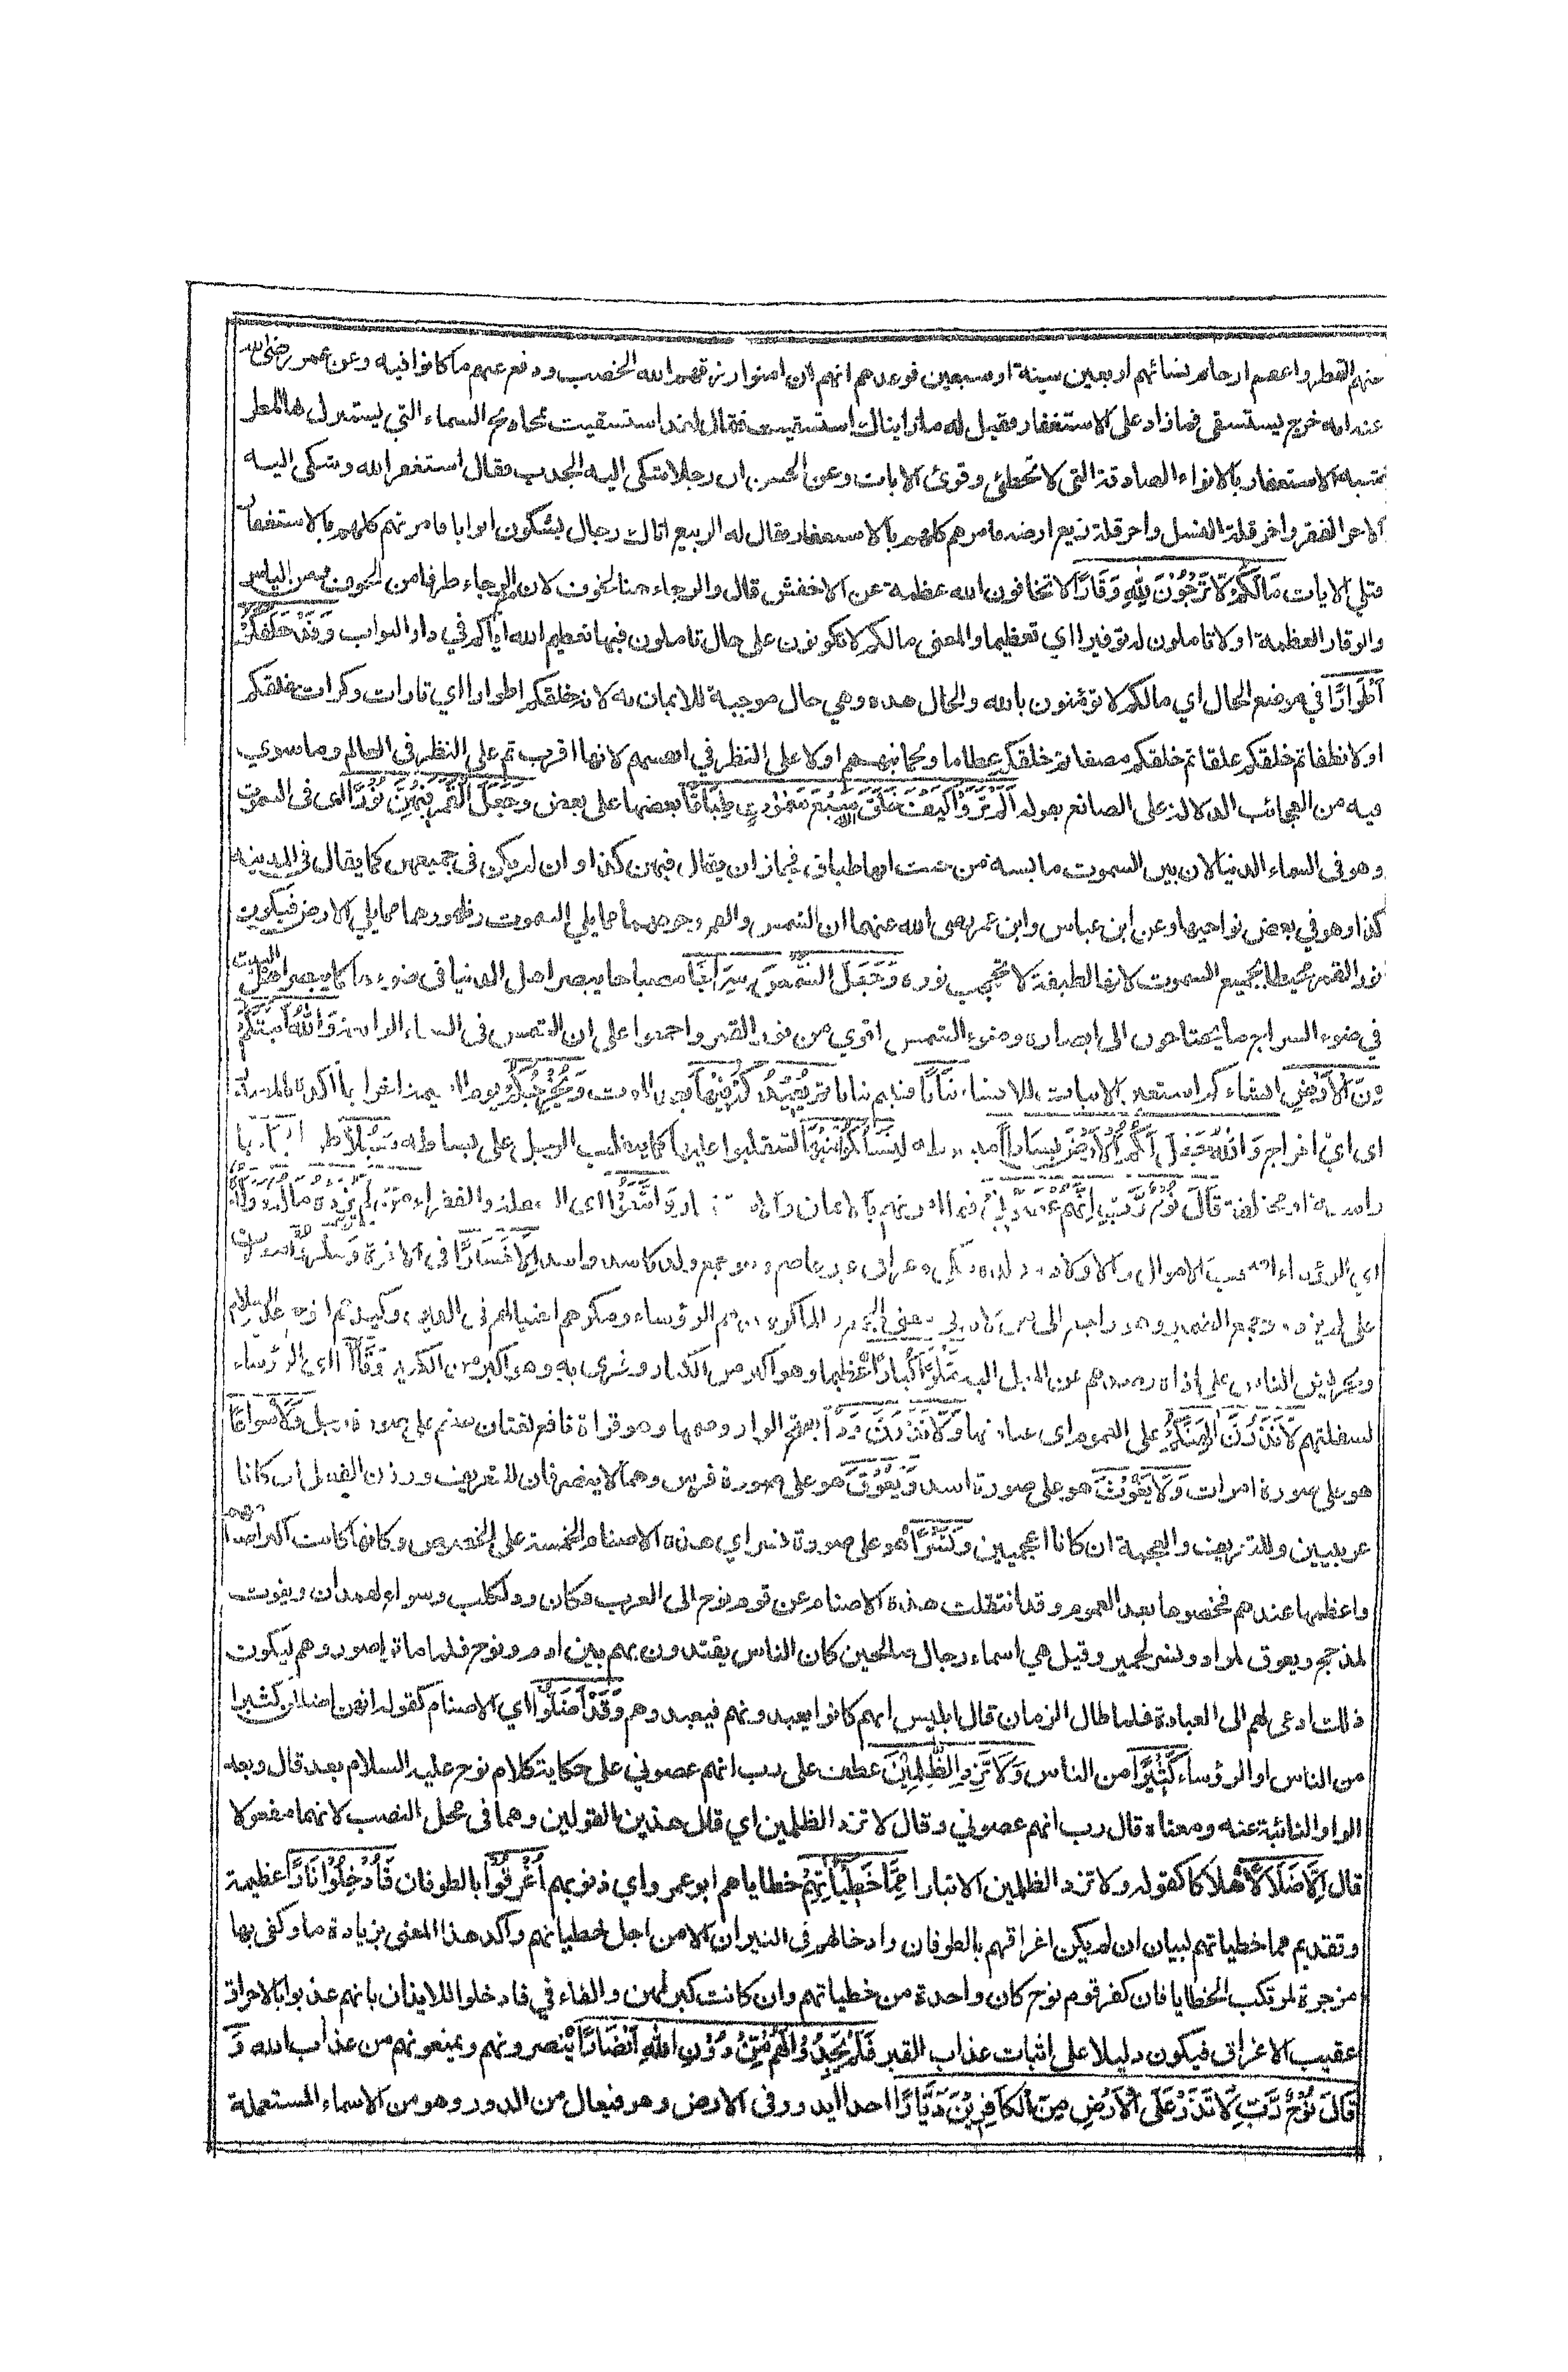 عنهم القطر واعقم ارحام نسائهم اربعين سنة او سبعين فوعدهم انهم ان امنوا رزقهم الله الخصب ودفع عنهم ما كانوا فيه وعن عمر رضي الله
عنه انه خرج يستسقي فما زاد على الاستغفار فقيل له ما رايناك استسقيت فقال لقد استسقيت بمجاديح السماء التي يستنزل بها المطر
شبه الاستغفار بالانواء الصادقة التي لا تخطئ وقرئ الايات وعن الحسن ان رجلا شكى اليه الجدب فقال استغفر الله وشكى اليه
الاخر الفقر واخر قلة النسل واخر قلة ريع ارضه فامرهم كلهم بالاستغفار فقال له الربيع اتاك رجال يشكون ابوابا فامرتهم كلهم بالاستغفار
فتلى الايات مَا لَكُمْ لَا تَرْجُوْنَ لِلّٰهِ وَقَارًا لا تخافون الله عظمة عن الاخفش قال والرجاء هنا الخوف لان الرجاء طرفا من الخوف ومن الياس
والوقار العظمة او لا تاملون له توقيرا اي تعظيما والمعنى مالكم لا تكونون على حال تاملون فيها تعظيم الله اياكم في دار الثواب وَقَدْ خَلَقَكُمْ
اَطْوَارًا في موضع الحال اي مالكم لا تؤمنون بالله والحال هذه وهي حال موجبة للايمان به لانه خلقكم اطوارا اي تارات وكرات خلقكم
اولا نطفا ثم خلقكم علقا ثم خلقكم مضغا ثم خلقكم عظاما ولحما نبههم اولا على النظر في انفسهم لانها اقرب ثم على النظر في العالم وما سوي
فيه من العجائب الدلالة على الصانع بقوله اَلَمْ تَرَوْا كَيْفَ خَلَقَ اللّٰهُ سَبْعَ سَمٰوٰتٍ طِبَاقًا بعضها على بعض وَجَعَلَ الْقَمَرَ فِيْهِنَّ نُوْرًا اي في السموت
وهو في السماء الدنيا لان بين السموت ملابسة من حيث انها طباق فجاز ان يقال فيهن كذا وان لم يكن في جميعهن كما يقال في المدينة
كذا وهو في بعض نواحيها وعن ابن عباس وابن عمر رضي الله عنهما ان الشمس والقمر وجوههما مما يلي السموت وظهورهما مما يلي الارض فيكون
نور القمر محيطا بجميع السموت لانها لطيفة لا تحجب نوره وَجَعَلَ الشَّمْسَ سِرَاجًا مصباحا يبصر اهل الدنيا في ضوءها كما يبصر اهل البيت
في ضوء السراج ما يحتاجون الى ابصاره وضوء الشمس اقوي من نور القمر واجمعوا على ان الشمس في السماء الرابعة وَاللّٰهُ اَنْبَتَكُمْ
مِّنَ الْاَرْضِ انشاءكم استعير الانبات للانشاء نَبَاتًا فنبتم نباتا ثُمَّ يُعِيْدُكُمْ فِيْهَا بعد الموت وَيُخْرِجُكُمْ يوم القيمة اِخْرَاجًا اكده بالمصدر
اي اي اخراج وَاللّٰهُ جَعَلَ لَكُمُ الْاَرْضَ بِسَاطًا مبسوطة لِتَسْلُكُوْا مِنْهَا لتتقلبوا عليها كما يتقلب الرجل على بساطه سُبُلًا
او مختلفة قَالَ نُوْحٌ رَّبِّ اِنَّهُمْ عَصَوْنِيْ فيما امرتهم به من الايمان والاستغفار وَاتَّبَعُوْا اي السفلة والفقراء مَنْ لَّمْ يَزِدْهُ مَالُهٗ وَوَلَدُهٗ
اي الرؤساء اصحاب الاموال والاولاد عاصم وهو جمع ولد كاسد واسد اِلَّا خَسَارًا في الاخرة
على لم يزده وجمع الضمير وهو راجع الى من لانه في معنى الجمع والماكرون هم الرؤساء ومكرهم احتيالهم في الدين وكيدهم لنوح عليه السلام
وتحريش الناس على اذاه وصدهم عن الميل اليه مَكْرًا كُبَّارًا عظيما وهو اكبر من الكبار وقرئ به وهو اكبر من الكبير وَقَالُوْا اي الرؤساء
لسفلتهم لَا تَذَرُنَّ اٰلِهَتَكُمْ على العموم اي عبادتها وَلَا تَذَرُنَّ وَدًّا بفتح الواو وضمها وهو قراة نافع لغتان صنم على صورة رجل وَّلَا سُوَاعًا
هو على صورة امرات وَلَا يَغُوْثَ هو على صورة اسد وَيَعُوْقَ هو على صورة فرس وهما لا ينصرفان للتعريف ووزن الفعل ان كانا
عربيين وللتعريف والعجمة ان كانا اعجميين وَنَسْرًا هو على صورة نسر اي هذه الاصنام الخمسة على الخصوص وكانها كانت اكبر اصنامهم
واعظمها عندهم فخصوها بعد العموم وقد انتقلت هذه الاصنام عن قوم نوح الى العرب وكان ود لكلب وسواع لهمدان ويغوث
لمذحج ويعوق لمراد ونسر لحمير وقيل هي اسماء رجال صالحين كان الناس يقتدون بهم بين ادم ونوح فلما ماتوا صوروهم ليكون
ذلك ادعى لهم الى العبادة فلما طال الزمان قال ابليس انهم كانوا يعبدونهم فيعبدوهم وَقَدْ اَضَلُّوْا اي الاصنام كقوله انهن اضللن كثيرا
من الناس او الرؤساء كَثِيْرًا من الناس وَلَا تَزِدِ الظّٰلِمِيْنَ عطف على رب انهم عصوني على حكاية كلام نوح عليه السلام بعد قال وبعد
الواو النائبة عنه ومعناه قال رب انهم عصوني وقال لا تزد الظلمين اي قال هذين القولين وهما في محل النصب لانهما مفعولا
قال اِلَّا ضَلَالًا هلاكا كقوله ولا تزد الظلمين الا تبارا مِمَّا خَطِيْئَاتِهِمْ خطاياهم ابو عمرو اي ذنوبهم اُغْرِقُوْا بالطوفان فَاُدْخِلُوْا نَارًا عظيمة
وتقديم مما خطياتهم لبيان ان لم يكن اغراقهم بالطوفان وادخالهم في النيران الا من اجل خطياتهم واكد هذا المعنى بزيادة ما وكفى بها
مزجرة لمرتكب الخطايا فان كفر قوم نوح كان واحدة من خطياتهم وان كانت كبراهن والفاء في فادخلوا للايذان بانهم عذبوا بالاحراق
عقيب الاغراق فيكون دليلا على اثبات عذاب القبر فَلَمْ يَجِدُوْا لَهُمْ مِّنْ دُوْنِ اللّٰهِ اَنْصَارًا ينصرونهم ويمنعونهم من عذاب الله وَ
قَالَ نُوْحٌ رَّبِّ لَا تَذَرْ عَلَى الْاَرْضِ مِنَ الْكَافِرِيْنَ دَيَّارًا احدا يدور في الارض وهو فيعال من الدور وهو من الاسماء المستعملة